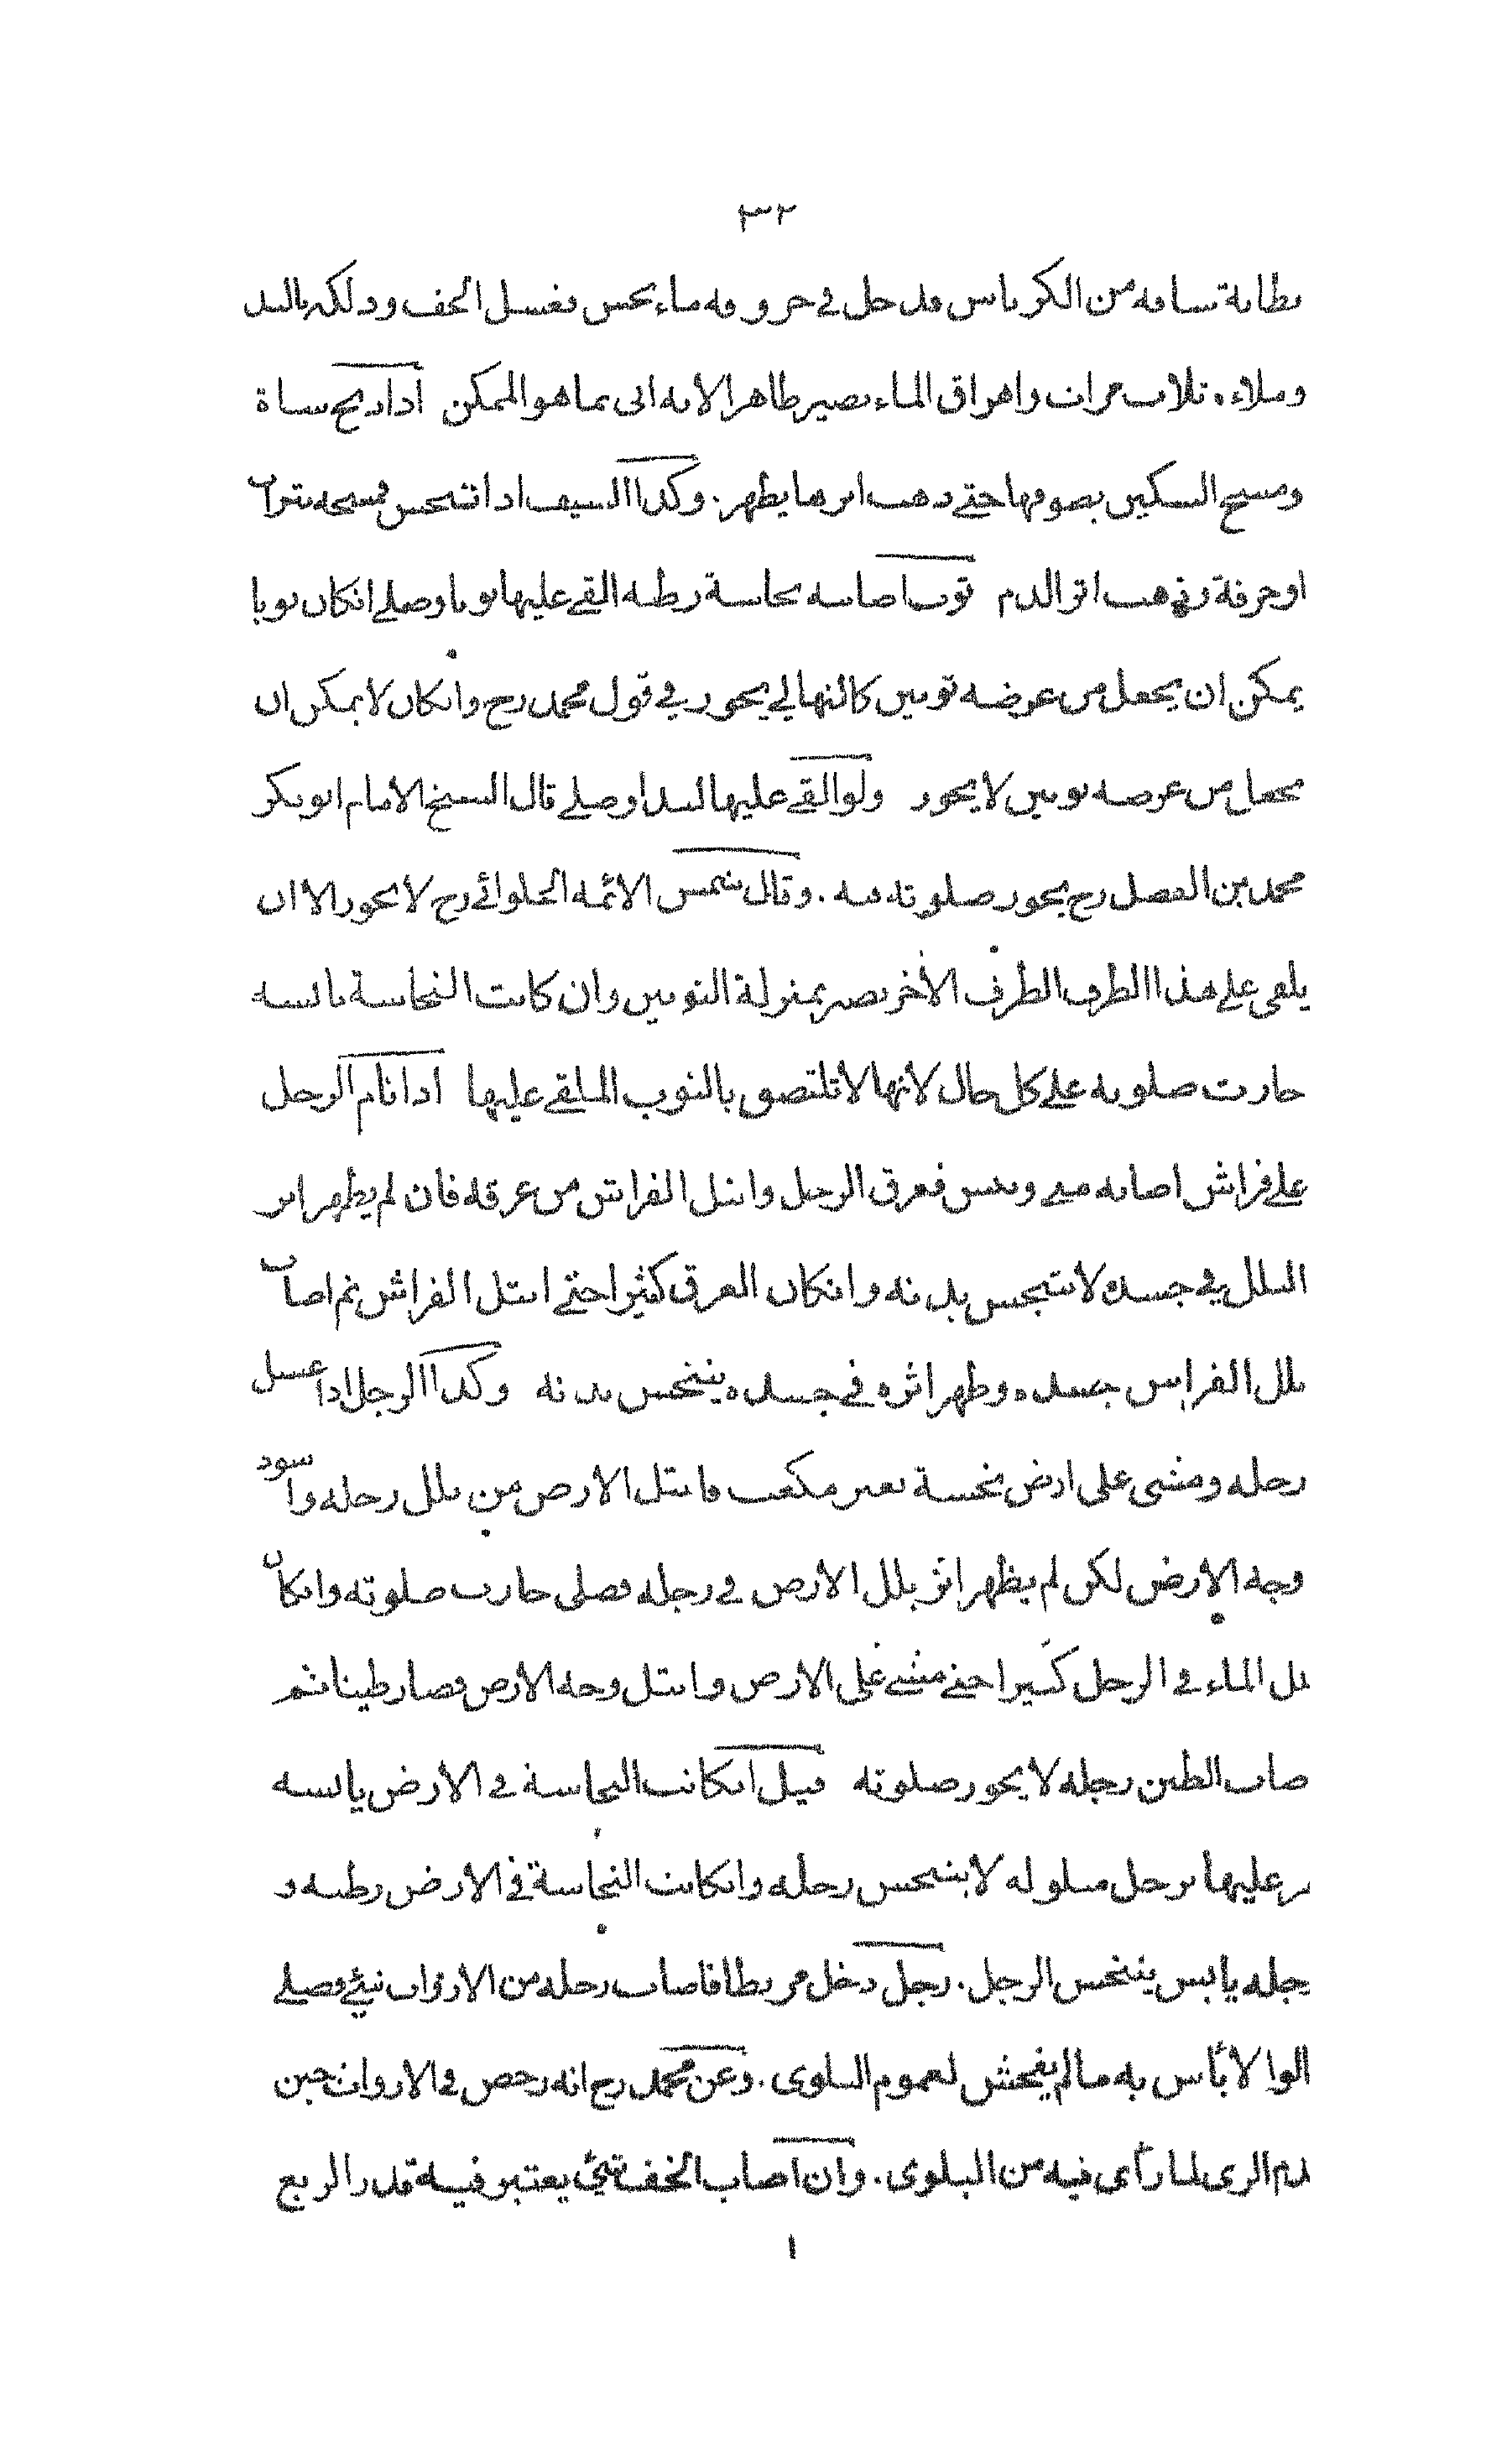 ٣٢
بطانة ساقه من الكرباس فدخل في خروقه ماء نجس فغسل الخف ودلكه باليد
وملاءه ثلاث مرات واهراق الماء يصير طاهرا لانه اتى بما هو الممكن اذا ذبح شاة
ومسح السكين بصوفها حتى ذهب اثرها يطهر. وكذا السيف اذا تنجس فمسحه بتراب
او خرقة فذهب اثر الدم ثوب اصابته نجاسة رطبة القى عليها ثوبا وصلى انكان ثوبا
يمكن ان يجعل من عرضه ثوبين كالنهالي يجوز في قول محمد رح وانكان لا يمكن ان
يجعل من عرضه ثوبين لا يجوز ولو القى عليها لبدا وصلى قال الشيخ الامام ابو بكر
محمد بن الفضل رح يجوز صلوته فيه. وقال شمس الائمة الحلوائي رح لا يجوز الا ان
يلقى على هذا الطرف الطرف الأخر يصير بمنزلة الثوبين وان كانت النجاسة يابسة
جازت صلوته على كل حال لانها لا تلتصق بالثوب الملقى عليها اذا نام الرجل
على فراش اصابه مني ويبس فعرق الرجل وابتل الفراش من عرقه فان لم يظهر اثر
البلل في جسده لا يتنجس بدنه وانكان العرق كثيرا حتى ابتل الفراش ثم اصاب
بلل الفراش جسده وظهر اثره في جسده يتنجس بدنه وكذا الرجل اذا غسل
رجله ومشى على ارض نجسة بغير مكعب فابتل الارض من بلل رجله واسود
وجه الارض لكن لم يظهر اثر بلل الارض في رجله فصلى جازت صلوته وانكان
بلل الماء في الرجل كثيرا حتى مشى على الارض وابتل وجه الارض فصار طينا ثم
صاب الطين رجله لا يجوز صلوته قيل انكانت النجاسة في الارض يابسة
مر عليها برجل مبلولة لا يتنجس رجله وانكانت النجاسة في الارض رطبة و
رجله يابس يتنجس الرجل. رجل دخل مربطا فاصاب رجله من الارواث شيئ فصلى
الوا لا بأس به ما لم يفحش لعموم البلوى. وعن محمد رح انه رخص في الارواث حين
قدم الرى لما رأى فيه من البلوى. وان اصاب الخف شيئ يعتبر فيه قدر الربع
ا